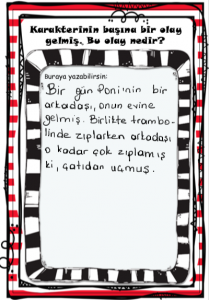 Karakterinin başına bir olay
gelmiş. Bu olay nedir?
Buraya yazabilirsin:
Bir gün Poni'nin bir
arkadaşı, onun evine
gelmiş. Birlikte trambo-
linde zıplarken arkadaşı
o kadar çok zıplamış
ki, çatıdan uçmuş.